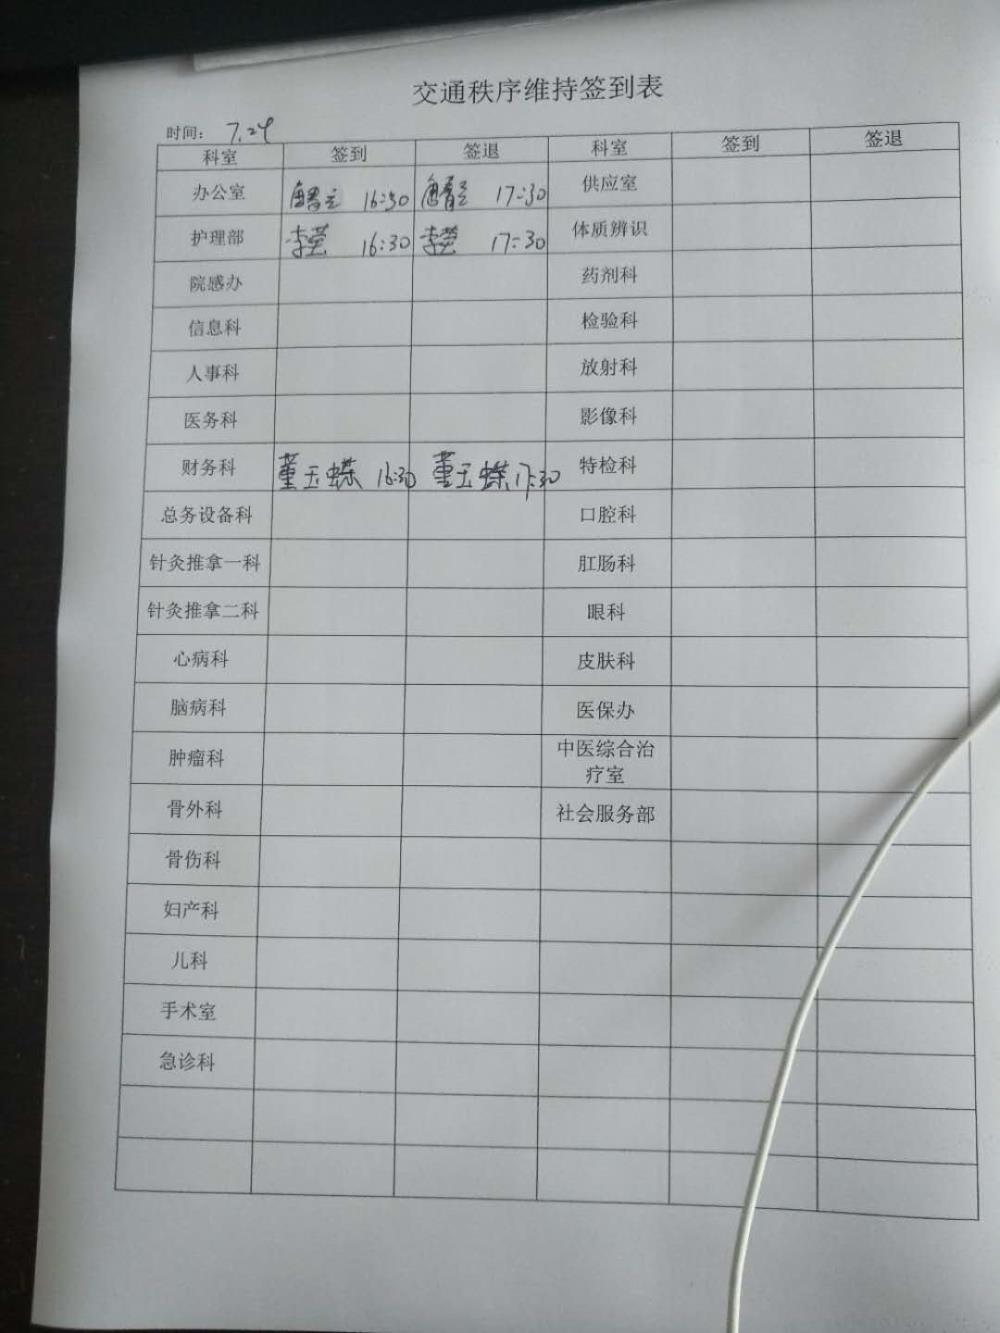 交通秩序维持签到表
时间： 7.24
科室 签到 签退 科室 签到 签退
办公室 16:30 17:30 供应室
护理部 李莹 16:30 李莹 17:30 体质辨识
院感办 药剂科
信息科 检验科
人事科 放射科
医务科 影像科
财务科 董玉蝶 16:30 董玉蝶 17:30 特检科
总务设备科 口腔科
针灸推拿一科 肛肠科
针灸推拿二科 眼科
心病科 皮肤科
脑病科 医保办
肿瘤科 中医综合治
疗室
骨外科 社会服务部
骨伤科
妇产科
儿科
手术室
急诊科